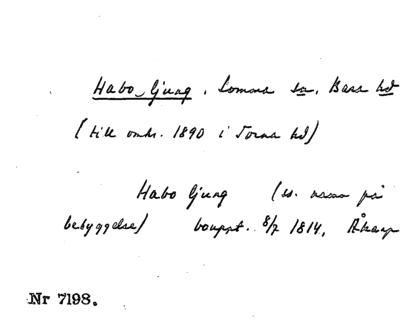 Habo Ljung, Lomma sn, Bara hd
(till omkr. 1890 i Torna hd)
Habo Ljung (ss. namn på
bebyggelse) bouppt. 8/7 1814, Åkarp
Nr 7198.